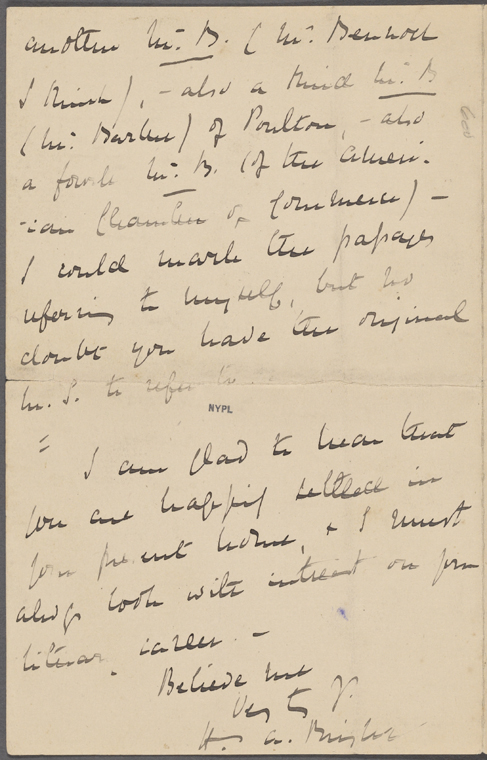 another Mr. B. (Mr. Bennoch
I think), - also a third Mr. B
(Mr. Barber) of Poulton, - also
a fourth Mr. B. (of the Ameri-
-ican Chamber of Commerce) -
I could mark the passages
referring to myself, but no
doubt you have the original
M.S. to refer to.
NYPL
=
I am glad to hear that
you are happily settled in
your present home, & I must
always look with interest on your
literary career. -
Believe me
Very ty Yr.
H. A. Bright